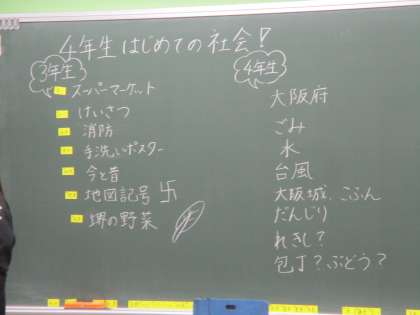 4年生はじめての社会!
3年生
スーパーマーケット
けいさつ
消防
手洗いポスター
今と昔
地図記号 卍
堺の野菜
4年生
大阪府
ごみ
水
台風
大阪城、こふん
だんじり
れきし?
包丁?、ぶどう?